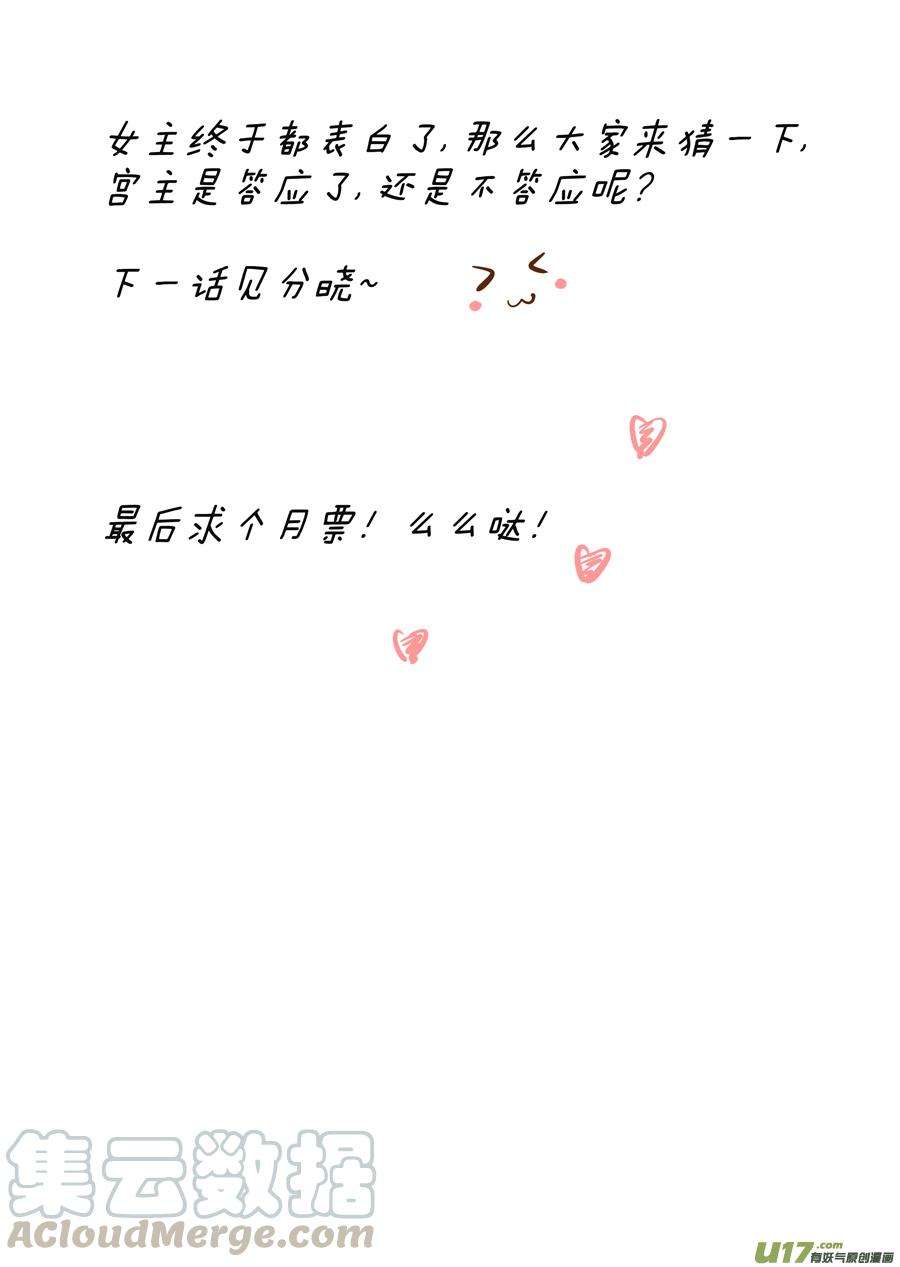 女主终于都表白了,那么大家来猜一下,
宫主是答应了,还是不答应呢?
下一话见分晓~
最后求个月票! 么么哒!
集云数据
ACloudMerge.com
U17.com
有妖气原创漫画